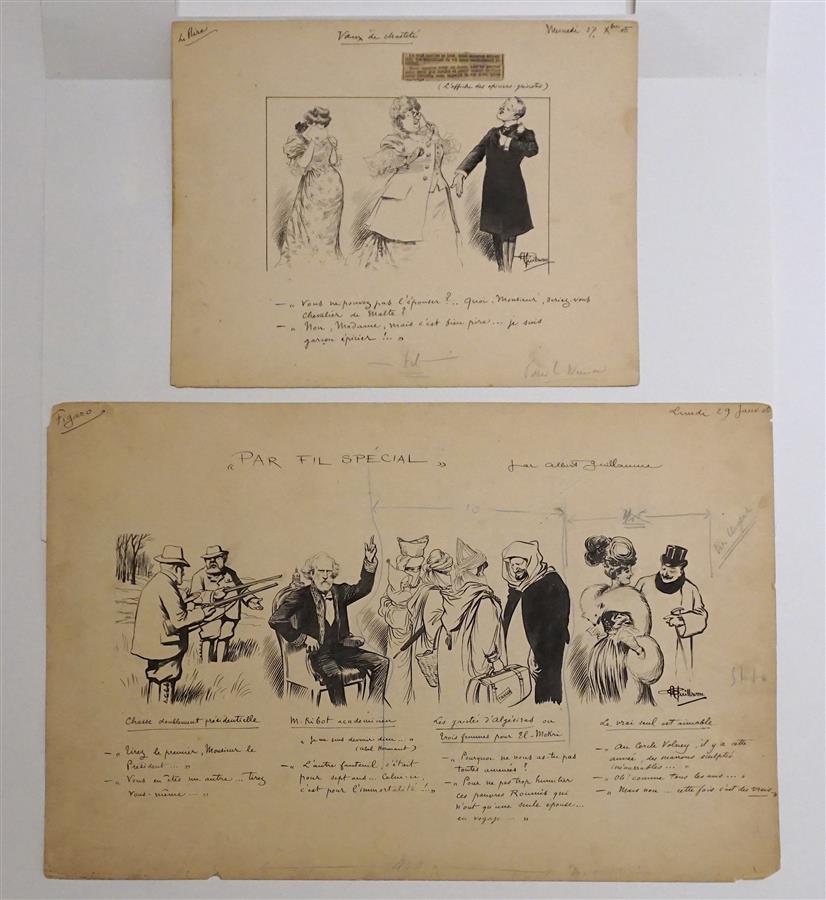 Le Rire
Vœux de chasteté
Mercredi 27 Xbre 05
(L'affiche des épiciers grévistes)
— „ Vous ne pouvez pas l'épouser ?.. Quoi, Monsieur, seriez-vous
chevalier de Malte ?
— „ Non, Madame, mais c'est bien pire... je suis
garçon épicier !.. „
AGuillaume
Figaro
Lundi 29 Janv 06
„ PAR FIL SPÉCIAL „
par Albert Guillaume
10
Chasse doublement présidentielle
— „ Tirez le premier, Monsieur le
Président... „
— „ Vous en êtes un autre... tirez
vous-même — „
M. Ribot académicien
„ Je me sens devenir dieu... „
(Abel Hermant)
— „ L'autre fauteuil, c'était
pour sept ans... Celui-ci,
c'est pour l'immortalité !.. „
Les gaietés d'Algésiras ou
trois femmes pour El-Mokri
— „ Pourquoi ne nous as-tu pas
toutes amenées ?
— „ Pour ne pas trop humilier
ces pauvres Roumis qui
n'ont qu'une seule épouse...
en voyage — „
Le vrai seul est aimable
— „ Au Cercle Volney, il y a cette
année, des marrons sculptés
— „ Oh ! comme tous les ans... „
— „ Mais non... cette fois c'est des vrais „
AGuillaume